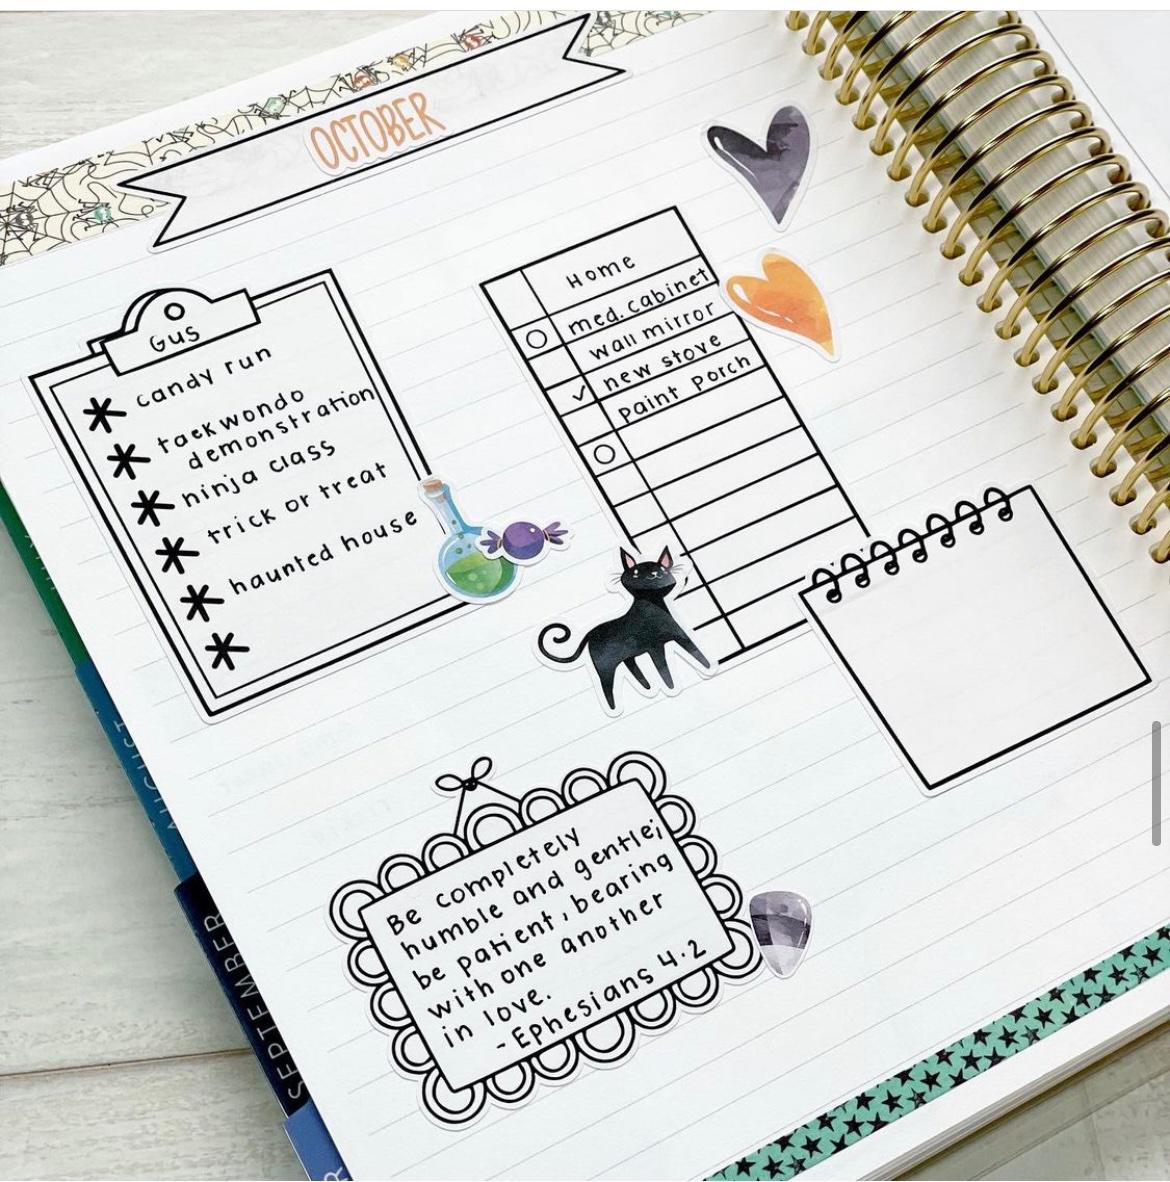 OCTOBER
Gus
candy run
taekwondo
demonstration
ninja class
trick or treat
haunted house
Home
med. cabinet
wall mirror
new stove
paint porch
Be completely
humble and gentle;
be patient, bearing
with one another
in love.
- Ephesians 4.2
SEPTEMBER